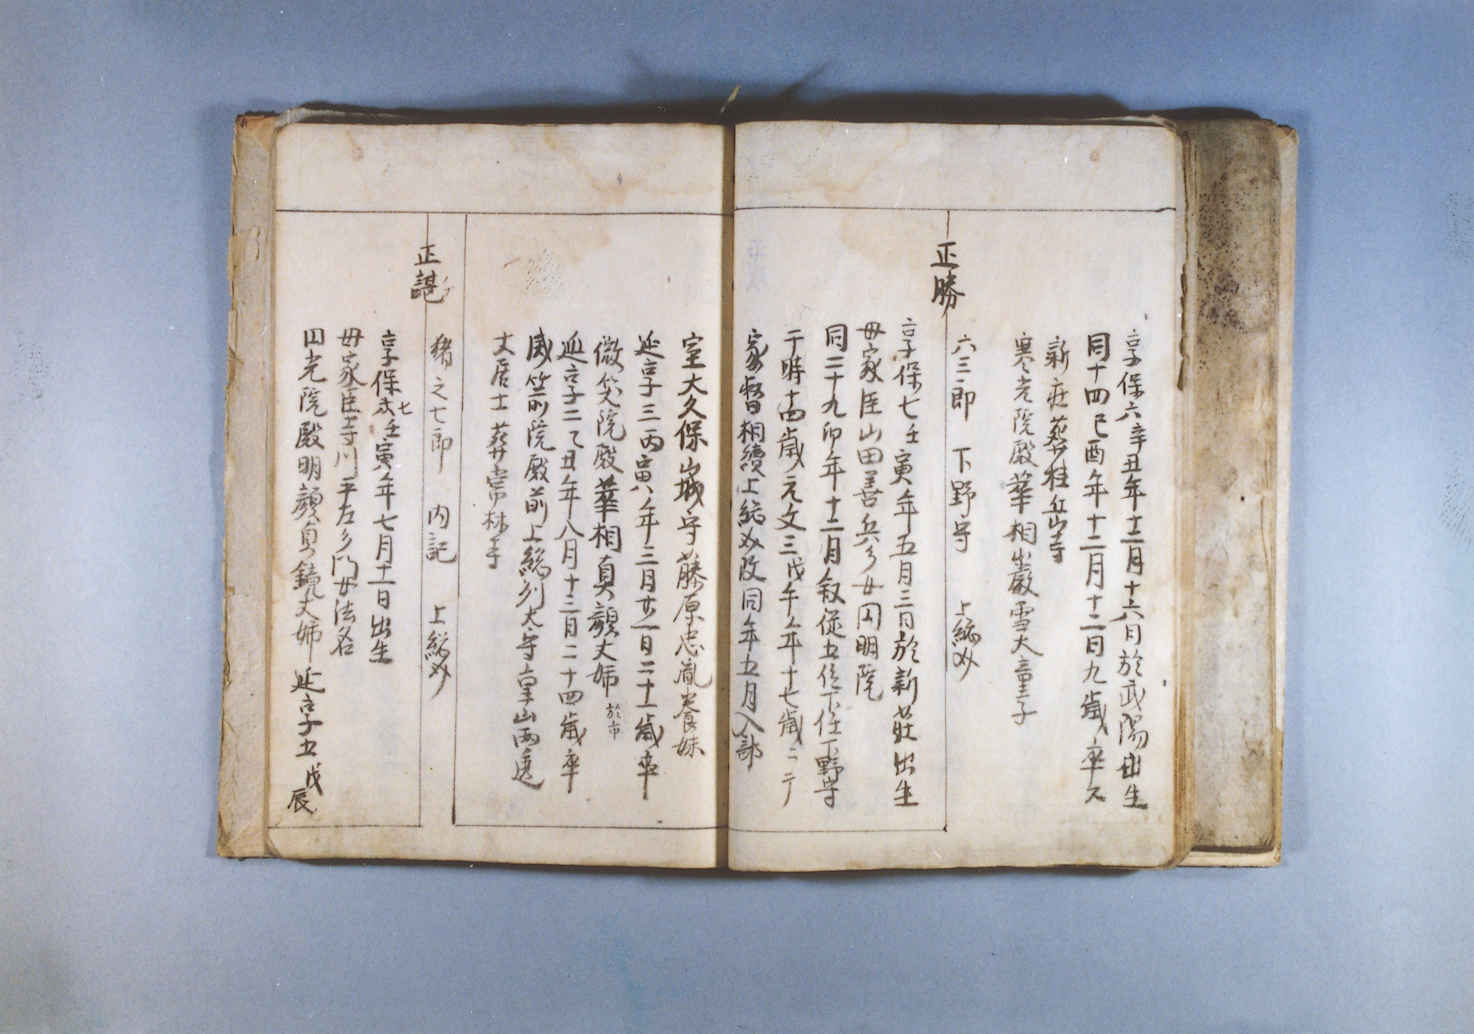 享保六辛丑年十二月十六日於武陽出生
同十四己酉年十二月十二日九歳卒久
新庄葬桂岳寺
寒光院殿華相出嚴雪大童子
正勝
六三郎 下野守 上総介
享保七壬寅年五月三日於新莊出生
母家臣山田善兵衛女円明院
同二十九卯年十二月叙従五位下任下野守
于時十四歳元文三戊午年十七歳ニテ
家督相續上総介改同年五月入部
室大久保山城守藤原忠胤養妹
延享三丙寅年三月廿一日二十一歳卒
微笑院殿華相真顔大姉 於市
延享二乙丑年八月十三日二十四歳卒
威笠院殿前上総列太守皐山両遠
大居士葬常林寺
正諶
猪之七郎 内記 上総介
享保七壬寅年七月十一日出生
母家臣寺川平左衛門女法名
円光院殿明顔貞鏡大姉 延享五戊辰